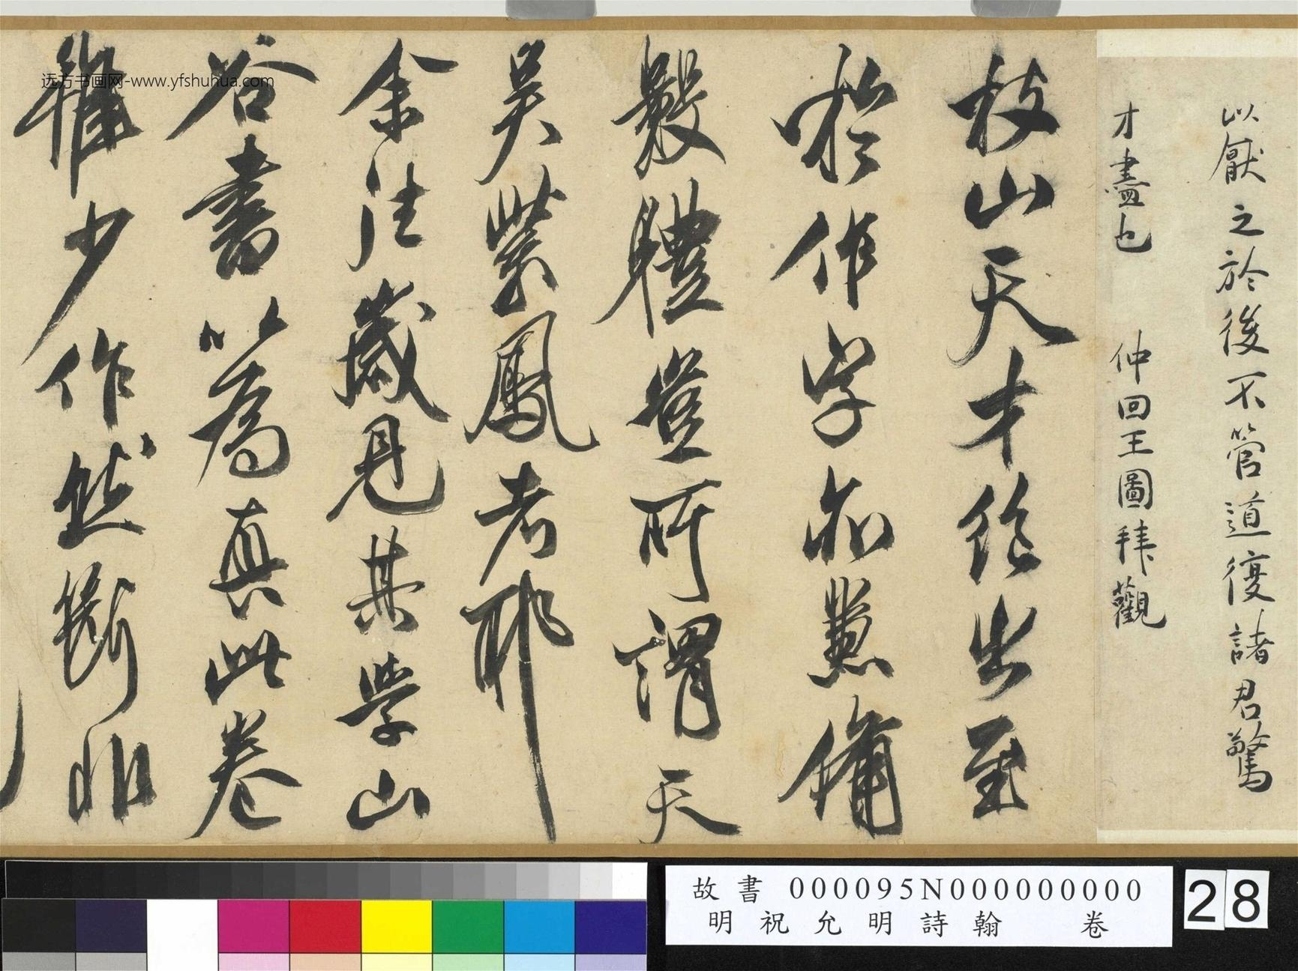 以厭之於後不管道復諸君驚
才盡也 仲回王圖拜觀
枝山天才絕出至
於作字亦兼備
數體豈所謂天
吳紫鳳者耶
余法歲見其學山
谷書以為真此卷
雖少作然斷非
远方书画网-www.yfshuhua.com
故書 000095N000000000
明祝允明詩翰 卷
28